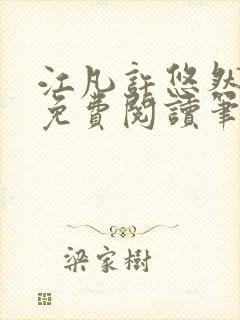 江凡許悠然
免費閱讀筆
梁家樹